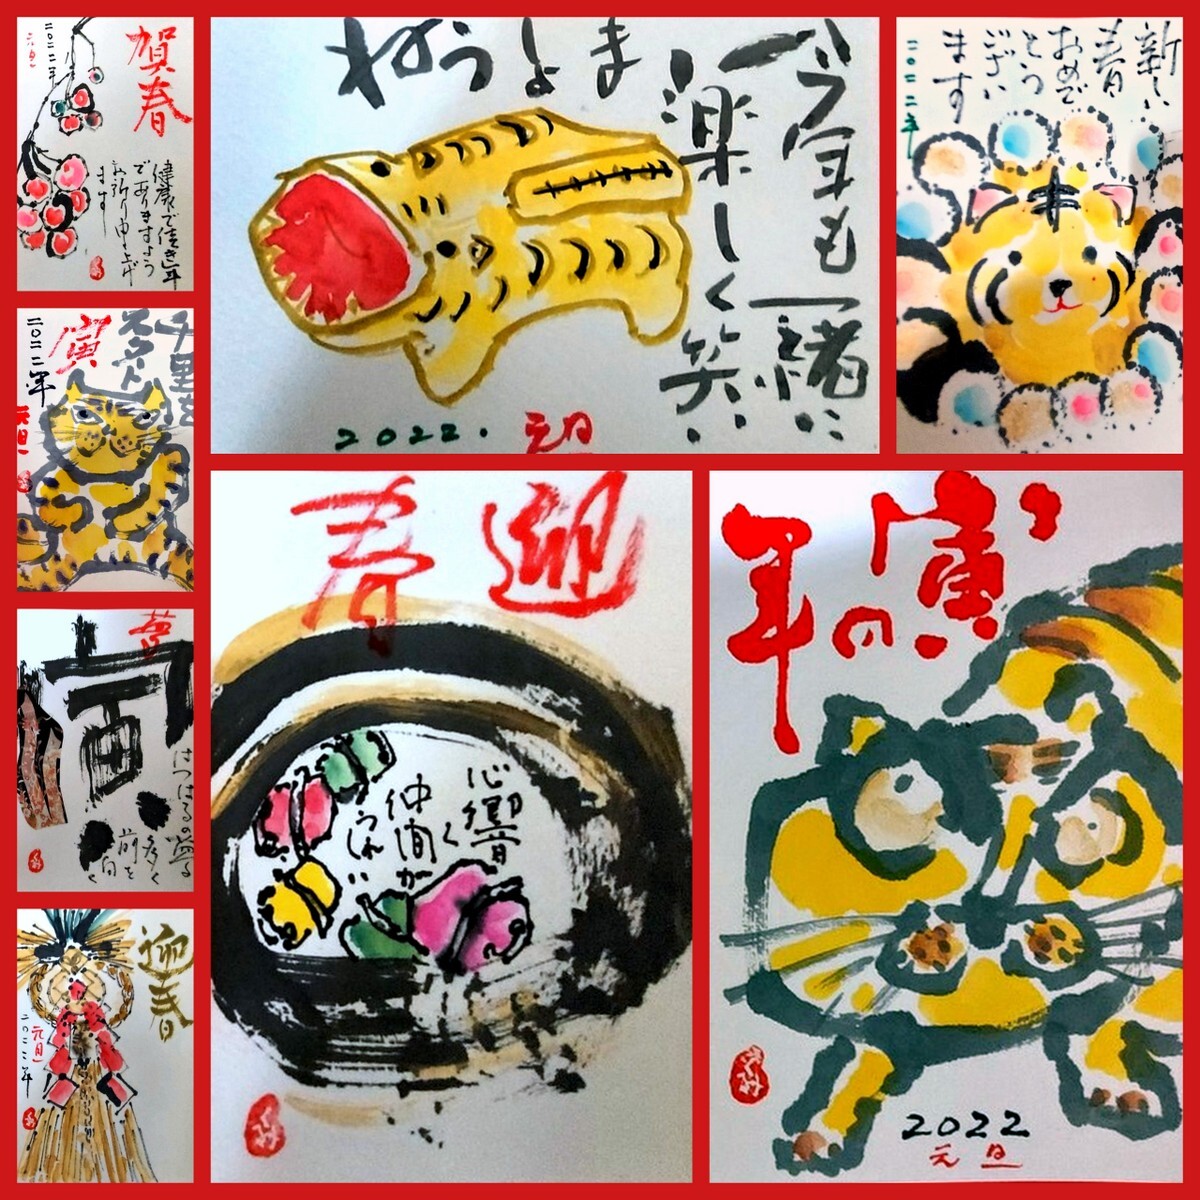 賀春
健康で佳き年
でありますよう
お祈り申し上げ
ます
二〇二二年
元旦
今年も一緒に
楽しく笑い
ましょうね
2022.元旦
新しい
春
おめで
とう
ござい
ます
二〇二二年
千里を
スタート
寅
二〇二二年
元旦
迎春
心響く
仲間が
うれしい
寅の年
2022
元旦
夢
寅
はつはるの
前を
向く
迎春
元旦
二〇二二年